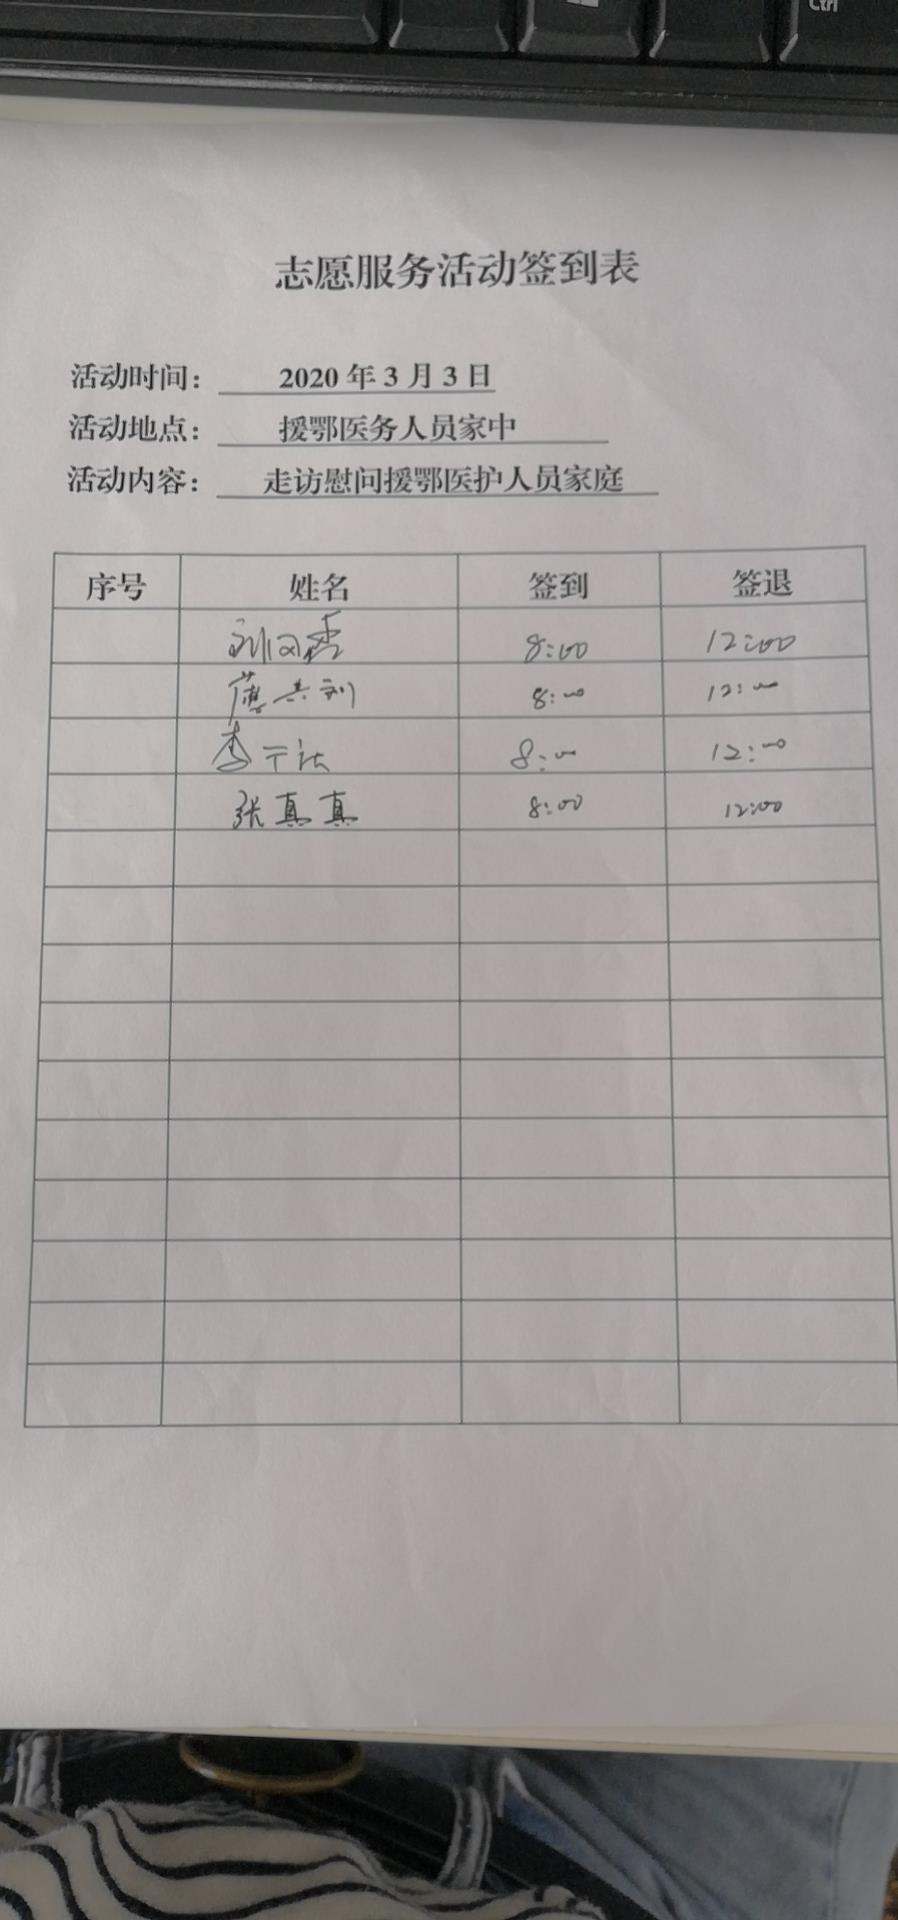 Ctrl
志愿服务活动签到表
活动时间： 2020 年 3 月 3 日
活动地点： 援鄂医务人员家中
活动内容： 走访慰问援鄂医护人员家庭
序号 姓名 签到 签退
8:00 12:00
8:00 12:00
李 8:00 12:00
张真真 8:00 12:00